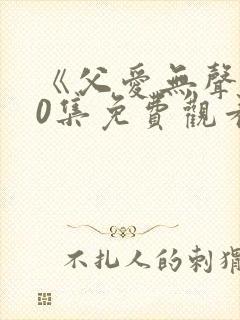 《父愛無聲
0集免費觀看
不扎人的刺猬